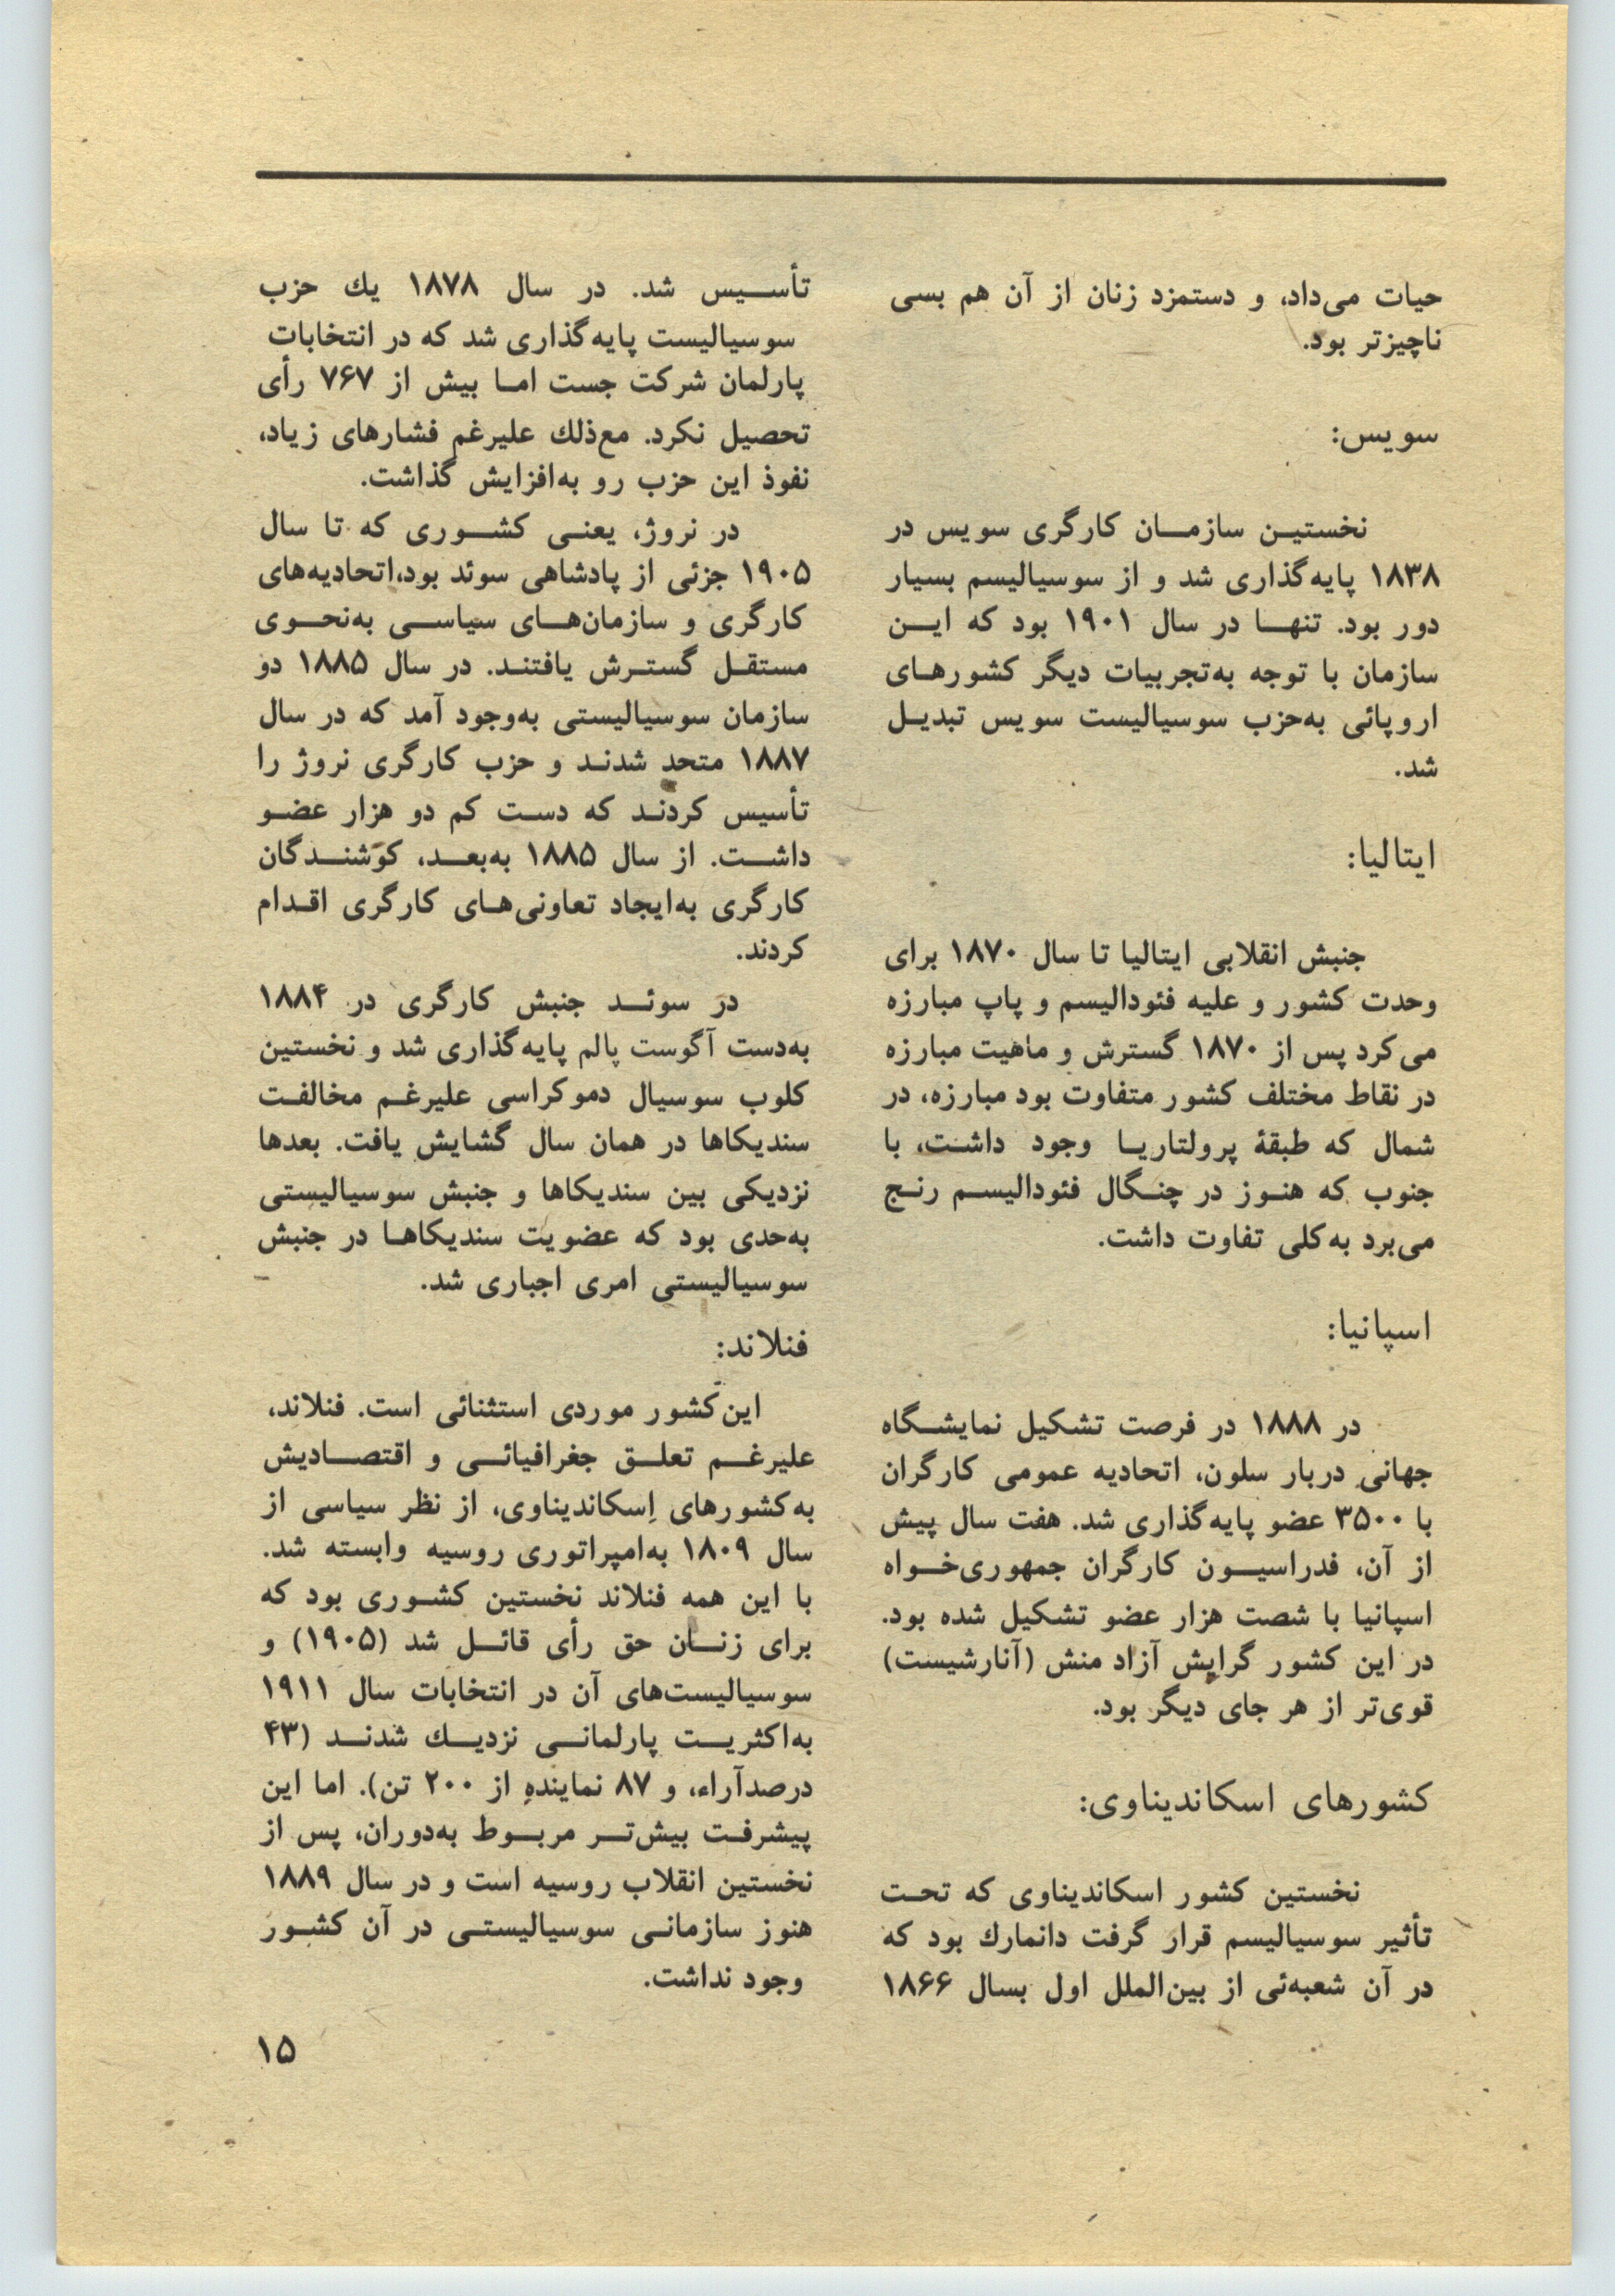 حیات می‌داد، و دستمزد زنان از آن هم بسی
ناچیزتر بود.
سویس:
نخستین سازمان کارگری سویس در
۱۸۳۸ پایه‌گذاری شد و از سوسیالیسم بسیار
دور بود. تنها در سال ۱۹۰۱ بود که این
سازمان با توجه به‌تجربیات دیگر کشورهای
اروپائی به‌حزب سوسیالیست سویس تبدیل
شد.
ایتالیا:
جنبش انقلابی ایتالیا تا سال ۱۸۷۰ برای
وحدت کشور و علیه فئودالیسم و پاپ مبارزه
می‌کرد پس از ۱۸۷۰ گسترش و ماهیت مبارزه
در نقاط مختلف کشور متفاوت بود مبارزه، در
شمال که طبقهٔ پرولتاریا وجود داشت، با
جنوب که هنوز در چنگال فئودالیسم رنج
می‌برد به‌کلی تفاوت داشت.
اسپانیا:
در ۱۸۸۸ در فرصت تشکیل نمایشگاه
جهانی دربار سلون، اتحادیه عمومی کارگران
با ۳۵۰۰ عضو پایه‌گذاری شد. هفت سال پیش
از آن، فدراسیون کارگران جمهوری‌خواه
اسپانیا با شصت هزار عضو تشکیل شده بود.
در این کشور گرایش آزاد منش (آنارشیست)
قوی‌تر از هر جای دیگر بود.
کشورهای اسکاندیناوی:
نخستین کشور اسکاندیناوی که تحت
تأثیر سوسیالیسم قرار گرفت دانمارك بود که
در آن شعبه‌ئی از بین‌الملل اول بسال ۱۸۶۶
تأسیس شد. در سال ۱۸۷۸ يك حزب
سوسیالیست پایه‌گذاری شد که در انتخابات
پارلمان شرکت جست اما بیش از ۷۶۷ رأی
تحصیل نکرد. مع‌ذلك علیرغم فشارهای زیاد،
نفوذ این حزب رو به‌افزایش گذاشت.
در نروژ، یعنی کشوری که تا سال
۱۹۰۵ جزئی از پادشاهی سوئد بود،اتحادیه‌های
کارگری و سازمان‌های سیاسی به‌نحوی
مستقل گسترش یافتند. در سال ۱۸۸۵ دو
سازمان سوسیالیستی به‌وجود آمد که در سال
۱۸۸۷ متحد شدند و حزب کارگری نروژ را
تأسیس کردند که دست کم دو هزار عضو
داشت. از سال ۱۸۸۵ به‌بعد، کوشندگان
کارگری به‌ایجاد تعاونی‌های کارگری اقدام
کردند.
در سوئد جنبش کارگری در ۱۸۸۴
به‌دست آگوست پالم پایه‌گذاری شد و نخستین
کلوب سوسیال دموکراسی علیرغم مخالفت
سندیکاها در همان سال گشایش یافت. بعدها
نزدیکی بین سندیکاها و جنبش سوسیالیستی
به‌حدی بود که عضویت سندیکاها در جنبش
سوسیالیستی امری اجباری شد.
فنلاند:
این‌کشور موردی استثنائی است. فنلاند،
علیرغم تعلق جغرافیائی و اقتصادیش
به‌کشورهای اِسکاندیناوی، از نظر سیاسی از
سال ۱۸۰۹ به‌امپراتوری روسیه وابسته شد.
با این همه فنلاند نخستین کشوری بود که
برای زنان حق رأی قائل شد (۱۹۰۵) و
سوسیالیست‌های آن در انتخابات سال ۱۹۱۱
به‌اکثریت پارلمانی نزدیك شدند (۴۳
درصدآراء، و ۸۷ نماینده از ۲۰۰ تن). اما این
پیشرفت بیش‌تر مربوط به‌دوران، پس از
نخستین انقلاب روسیه است و در سال ۱۸۸۹
هنوز سازمانی سوسیالیستی در آن کشور
وجود نداشت.
۱۵